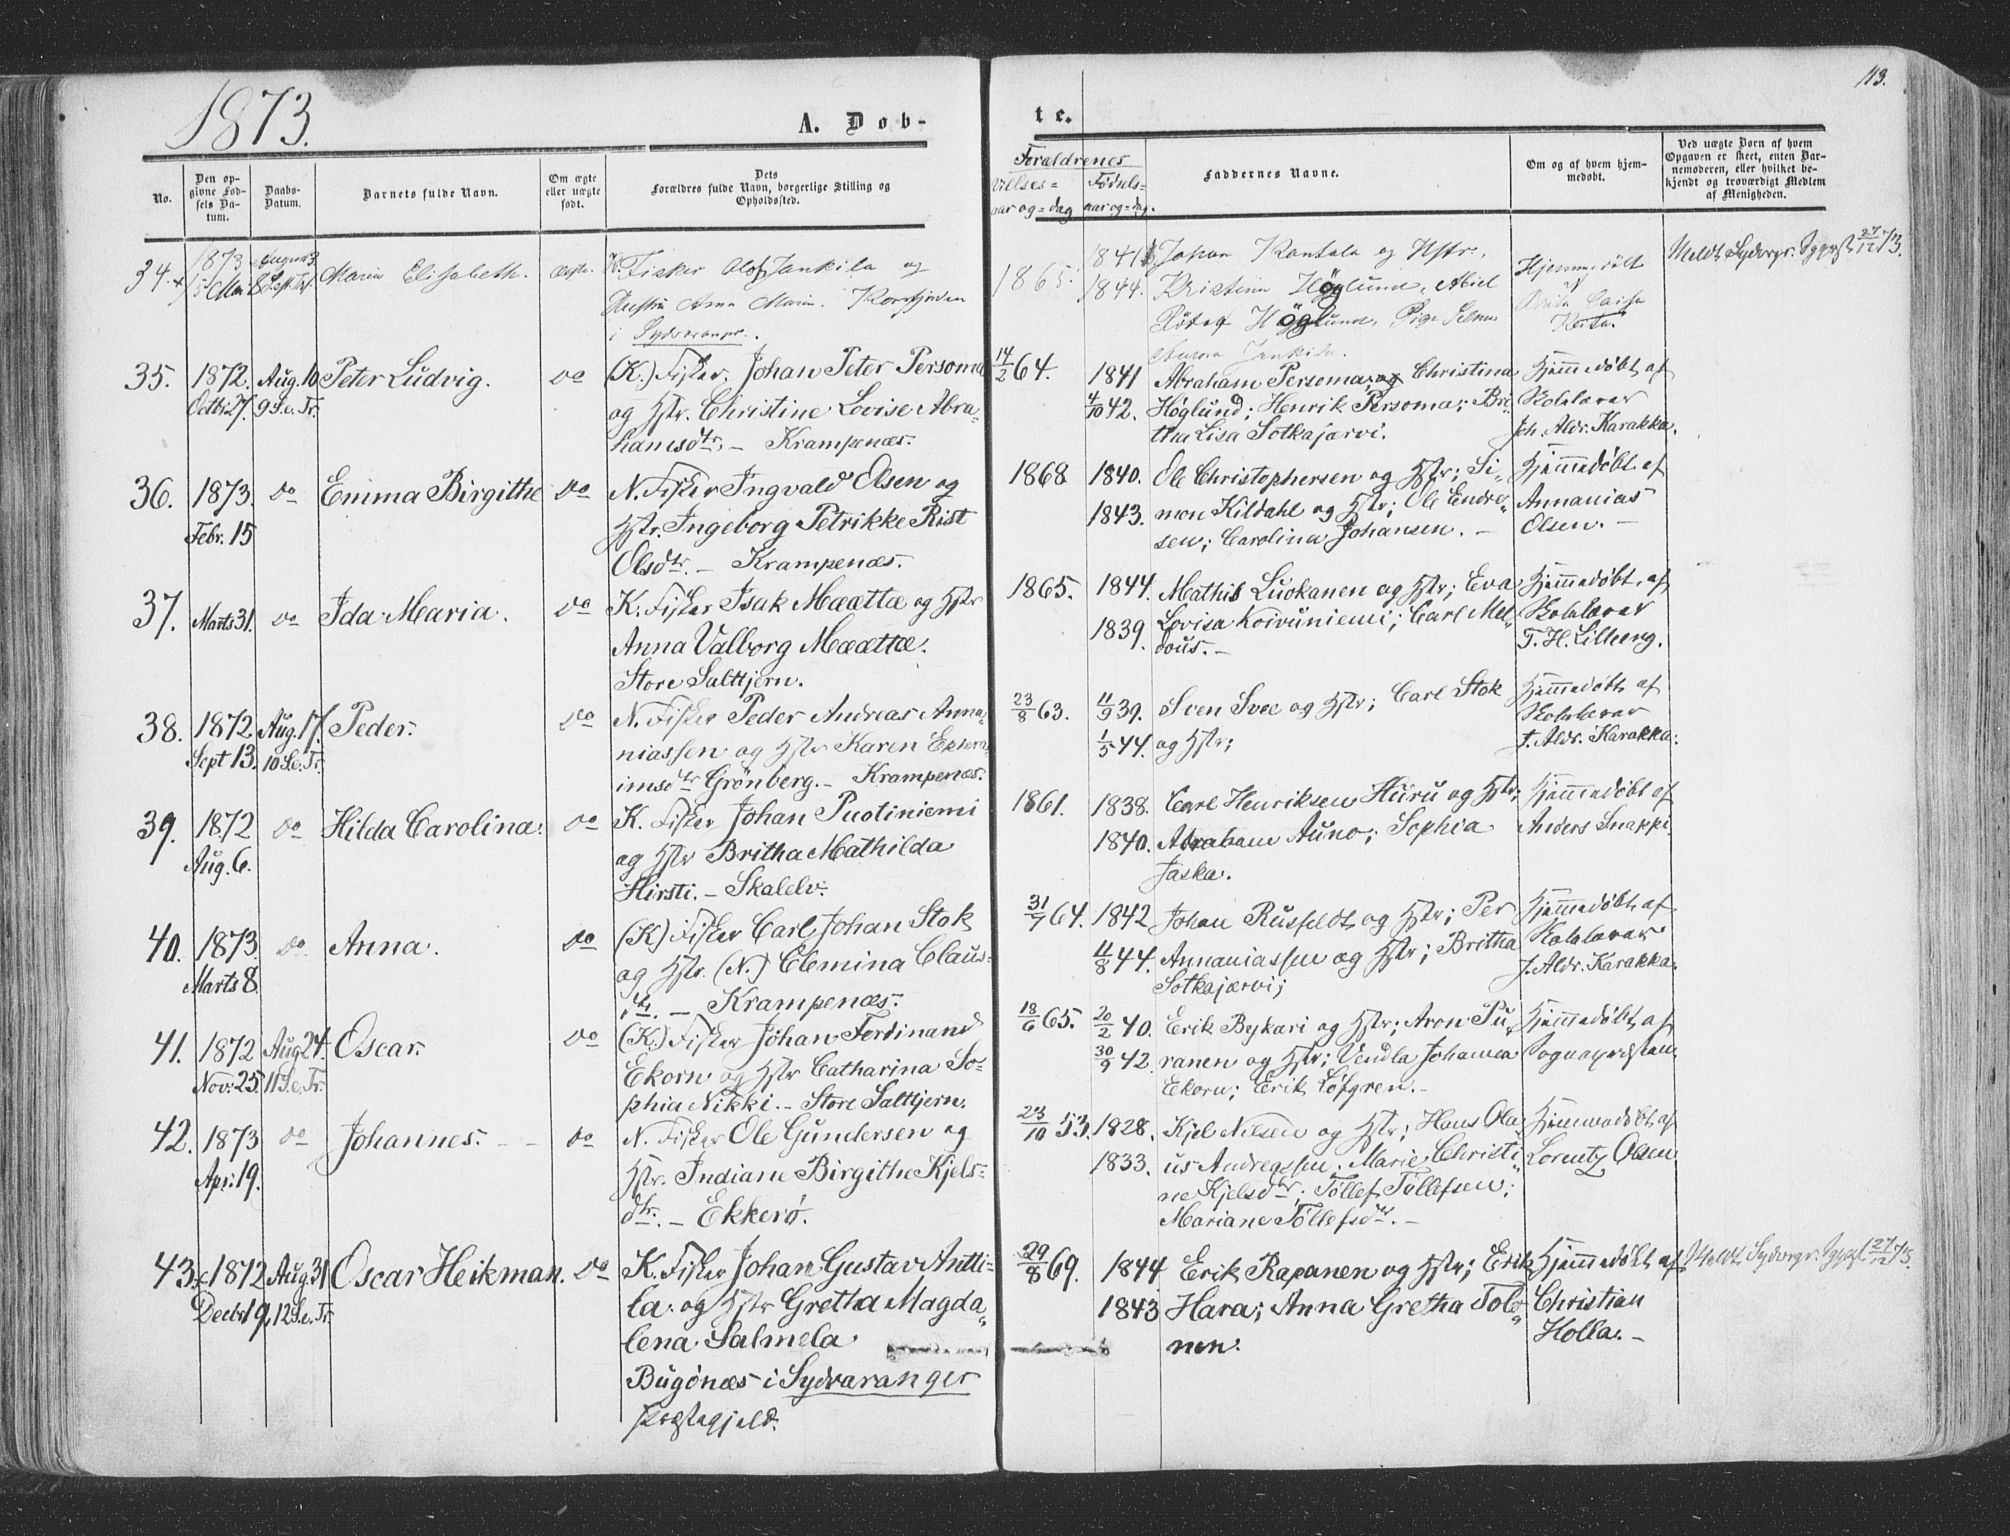 1873.
A. Døb-
te.
113.
No.
Den op-
givne Fød-
sels Da-
tum.
Daabs-
Datum.
Barnets fulde Navn.
Om ægte
eller uægte
født.
Dets
Forældres fulde Navn, borgerlige Stilling og
Opholdssted.
Forældrenes
Vielses-
aar og-dag
Fødsels-
aar og-dag.
Faddernes Navne.
Om og af hvem hjem-
medøbt.
Ved uægte Børn af hvem
Opgaven er skeet, enten Bar-
nemoderen, eller hvilket be-
kjendt og troværdigt Medlem
af Menigheden.
34.
1873
Mai
Maria Elisabeth.
ægte.
K. Fisker Olof Jankila og
Hustru Anna Maria. Korsfjorden
i Sydvaranger.
1865.
1841
1844.
Johan Kantola og Hstr.,
Kristina Höglund, Abiel
Höglund, Pige Selma
Aurora Jankila.
Hjemmedøbt
Caisa
Meldt Sydvgr. Sggpst. 27/12 73.
35.
1872.
Octbr 27.
Aug. 10
9 S. e. Tr.
Peter Ludvig.
do
(K.) Fisker, Johan Peter Persoma
og Hstr. Christine Lovise Abra-
hamsdtr. – Krampenæs.
14/2 64.
1841
4/10 42.
Abraham Persoma, og Christina
Höglund; Henrik Persoma; Bri-
tha Lisa Sotkajærvi.
Hjemmedøbt af
Skolelærer
Joh. Aldr. Karakka.
36.
1873.
Febr. 15
do
Emma Birgithe
do
N. Fisker Ingvald Olsen og
Hstr. Ingeborg Petrikke Rist
Olsdtr. – Krampenæs.
1868
1840.
1843.
Ole Christophersen og Hstr; Si-
mon Kildahl og Hstr; Ole Endre-
sen; Carolina Johansen. –
Hjemmedøbt af
Annanias
Olsen. –
37.
Marts 31.
do
Ida Maria.
do
K. Fisker Isak Mæættæ og Hstr
Anna Valborg Mæættæ.
Store Saltjern.
1865.
1844.
1839.
Mathis Luokanen og Hstr; Eva
Lovisa Koivuniemi; Carl Mel-
dous. –
Hjemmedøbt af
Skolelærer
T. H. Lilleeng.
38.
1872
Sept 13.
Aug. 17.
10 S. e. Tr.
Peder.
do
N. Fisker Peder Andreas Anna-
niassen og Hstr Karen Ephra-
imsdtr Grönberg. – Krampenæs.
23/8 63.
11/9 39.
1/5 44.
Sven Svee og Hstr; Carl Stok
og Hstr;
Hjemmedøbt af
Skolelærer
J. Aldr. Karakka.
39.
1872
Aug. 6.
do
Hilda Carolina.
do
K. Fisker Johan Puotiniemi
og Hstr Britha Mathilda
Hirsti. – Skalelv.
1861.
1838.
1840.
Carl Henriksen Hiiru og Hstr;
Abraham Auno; Sophia
Jaska.
Hjemmedøbt af
Anders Snappi.
40.
1873.
Marts 8.
do
Anna.
do
(K) Fisker Carl Johan Stok
og Hstr. (N.) Clemina Claus-
dtr. – Krampenæs.
31/7 64.
1842
11/8 44.
Johan Rusfeldt og Hstr; Per
Annaniassen og Hstr; Britha
Sotkajærvi;
Hjemmedøbt af
Skolelærer
J. Aldr. Karakka.
41.
1872
Nov. 25.
Aug 24.
11 S. e. Tr.
Oscar.
do
(K.) Fisker Johan Ferdinand
Ekorn og Hstr Catharina So-
phia Nikki. – Store Saltjern.
18/6 65.
20/2 40.
30/9 42.
Erik Bykari og Hstr; Aron Pu-
ranen og Hstr; Vendla Johanna
Ekorn; Erik Løfgren. –
Hjemmedøbt af
Sognepresten
42.
1873
Apr. 19.
do
Johannes.
do
N. Fisker Ole Gundersen og
Hstr. Indiane Birgithe Kjels-
dtr. – Ekkerø.
23/10 53.
1828.
1833.
Kjel Nilsen og Hstr; Hans Ola-
us Andreassen, Marie Christi-
ne Kjelsdtr; Tollef Tollefsen;
Mariane Tollefsdtr. –
Hjemmedøbt af
Lorentz Olsen
43.
1872
Decbr 9.
Aug. 31
12 S. e. Tr.
Oscar Heikman.
do
K. Fisker Johan Gustav Antti-
la og Hstr Gretha Magda-
lena Salmela
Bugönæs i Sydvaranger
Præstegjeld.
29/8 69.
1844
1843
Erik Rapanen og Hstr; Erik
Hara; Anna Gretha Tolo-
nen.
Hjemmedøbt af
Christian
Holla. –
Meldt Sydvrgr. Sggpst 27/12 73.